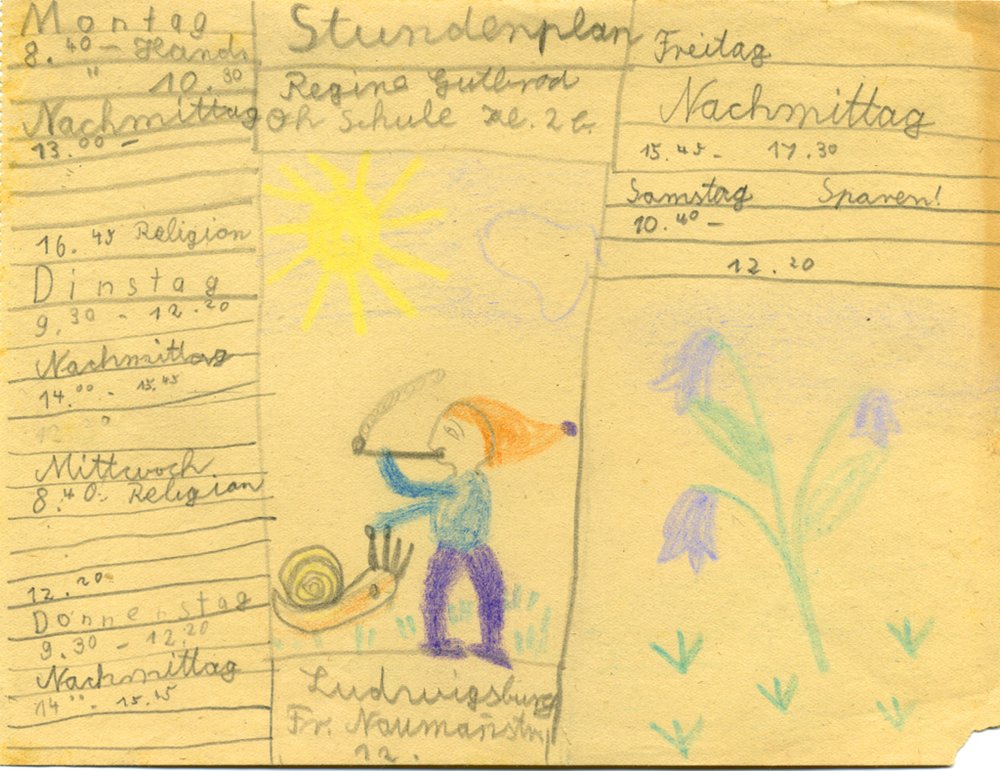 Montag
8.40 – Hands
" 10.30
Nachmittag
13.00 –
16.45 Religion
Dinstag
9.30 - 12.20
Nachmittag
14.00 - 15.45
12.20
Mittwoch
8.40. Religion
12.20
Donnenstag
9.30 - 12.20
Nachmittag
14 " - 15.45
Stundenplan
Regine Gutbrod
Oh Schule Kl. 2 b.
Ludwigsburg
Fr. Naumanstr
12.
Freitag
Nachmittag
15.45 - 17.30
Samstag Sparen!
10.40 –
12.20